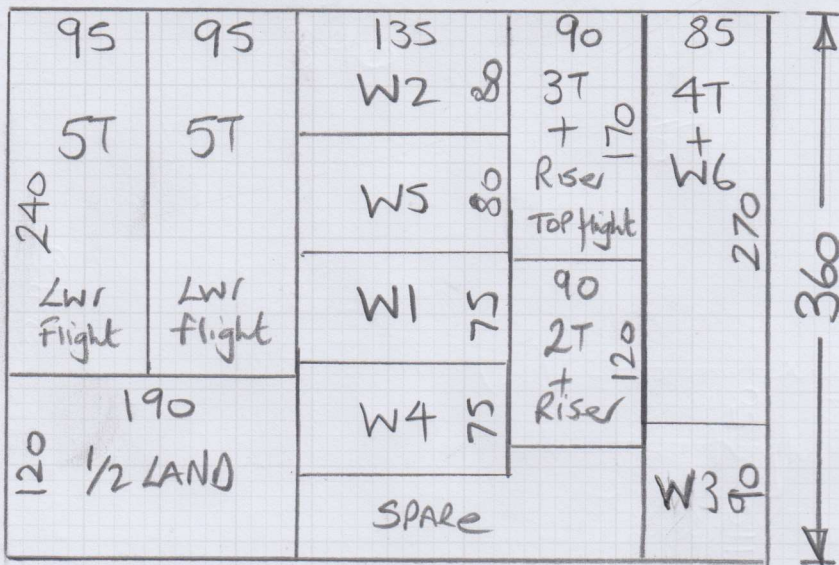 95
5T
240
Lwr
Flight
95
5T
Lwr
flight
190
120
1/2 LAND
135
W2 80
W5 80
W1 75
W4 75
SPARe
90
3T
+
Riser
170
TOP flight
90
2T
+
Riser
120
85
4T
+
W6
270
W3 90
360